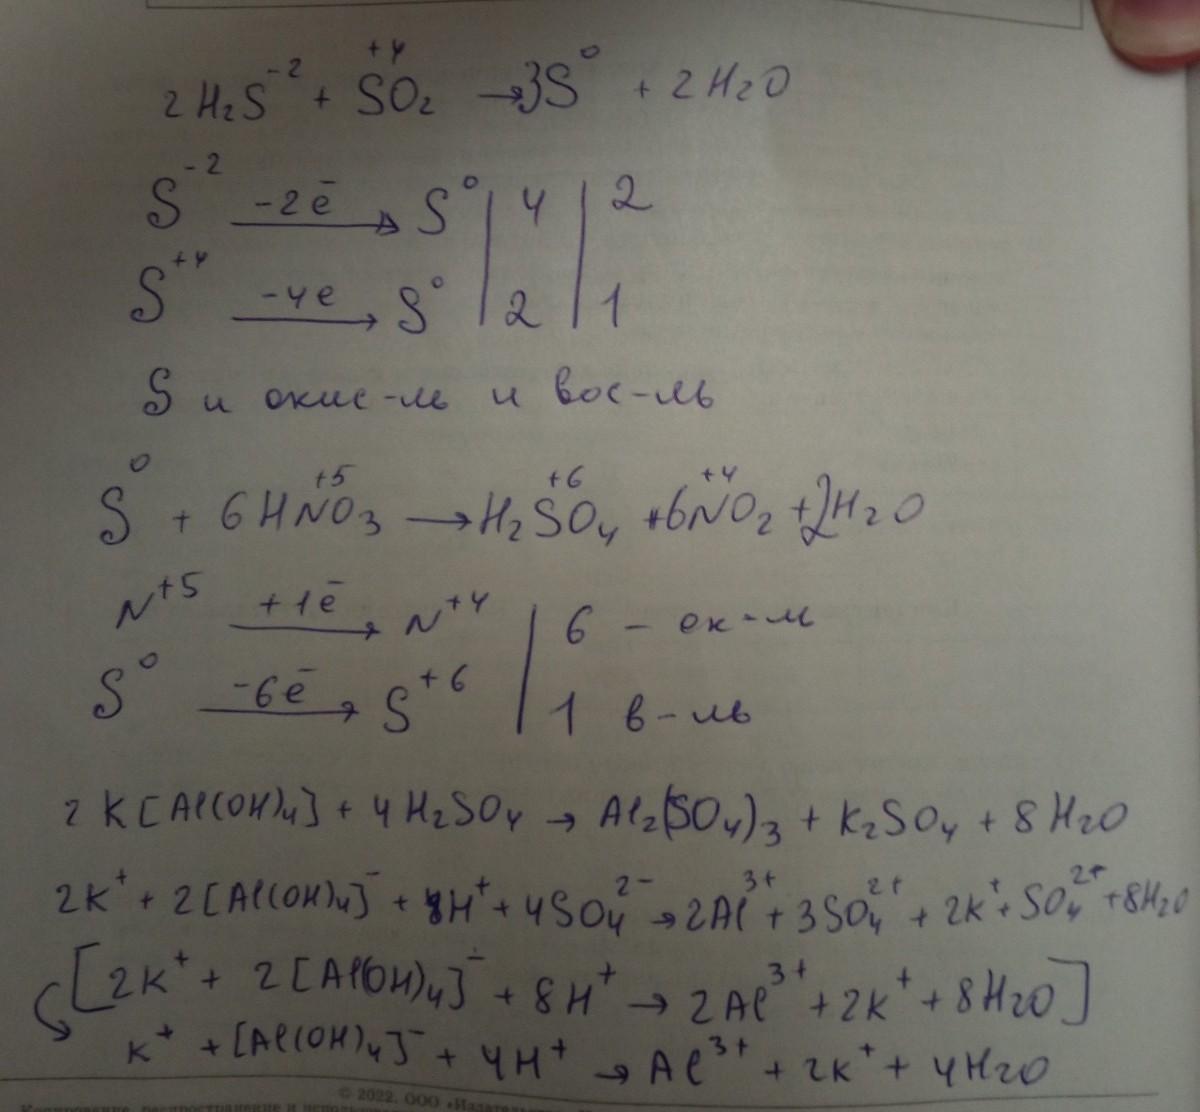 2H₂S⁻² + S⁺⁴O₂ → 3S⁰ + 2H₂O
S⁻² -2ē → S⁰ | 4 | 2
S⁺⁴ -4e → S⁰ | 2 | 1
S и окис-ль и вос-ль
S⁰ + 6HN⁺⁵O₃ → H₂S⁺⁶O₄ + 6N⁺⁴O₂ + 2H₂O
N⁺⁵ +1ē → N⁺⁴ | 6 - ок-ль
S⁰ -6ē → S⁺⁶ | 1 в-ль
2K[Al(OH)₄] + 4H₂SO₄ → Al₂(SO₄)₃ + K₂SO₄ + 8H₂O
2K⁺ + 2[Al(OH)₄]⁻ + 8H⁺ + 4SO₄²⁻ → 2Al³⁺ + 3SO₄²⁺ + 2K⁺ + SO₄²⁺ + 8H₂O
[2K⁺ + 2[Al(OH)₄]⁻ + 8H⁺ → 2Al³⁺ + 2K⁺ + 8H₂O]
K⁺ + [Al(OH)₄]⁻ + 4H⁺ → Al³⁺ + 2K⁺ + 4H₂O
© 2022. ООО «Издательство
Копирование, распространение и использование